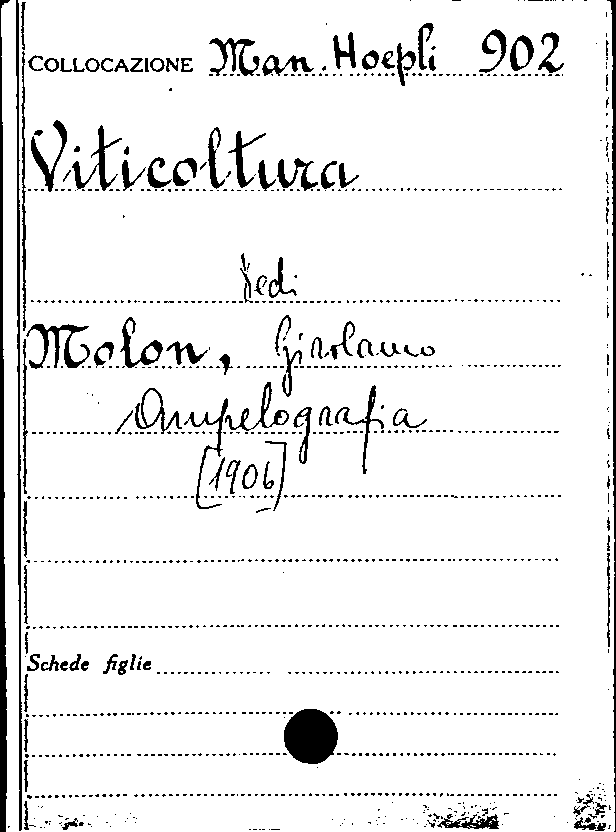 COLLOCAZIONE Man. Hoepli 902
Viticoltura
Vedi
Molon, Girolamo
Ampelografia
[1906]
Schede figlie